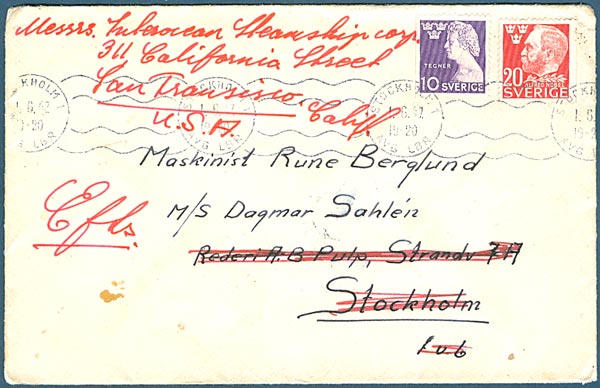 Messrs. Interocean Steamship corp.
311 California Street
San Francisco, Calif.
U.S.A.
TEGNÉR
10 SVERIGE
20
ALFRED NOBEL
SVERIGE
STOCKHOLM 1
1.6.47
19-20
AVG LBR
STOCKHOLM 1
1.6.47
19-20
AVG LBR
Maskinist Rune Berglund
Efts.
M/S Dagmar Sahlén
Rederi A-B Pulp, Strandv 7A
Stockholm